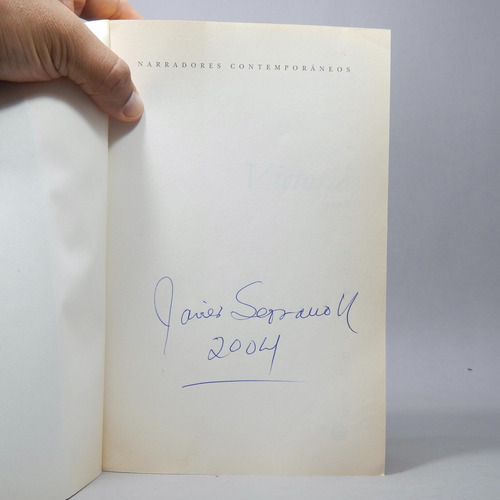 NARRADORES CONTEMPORÁNEOS
Javier Serrano
2004